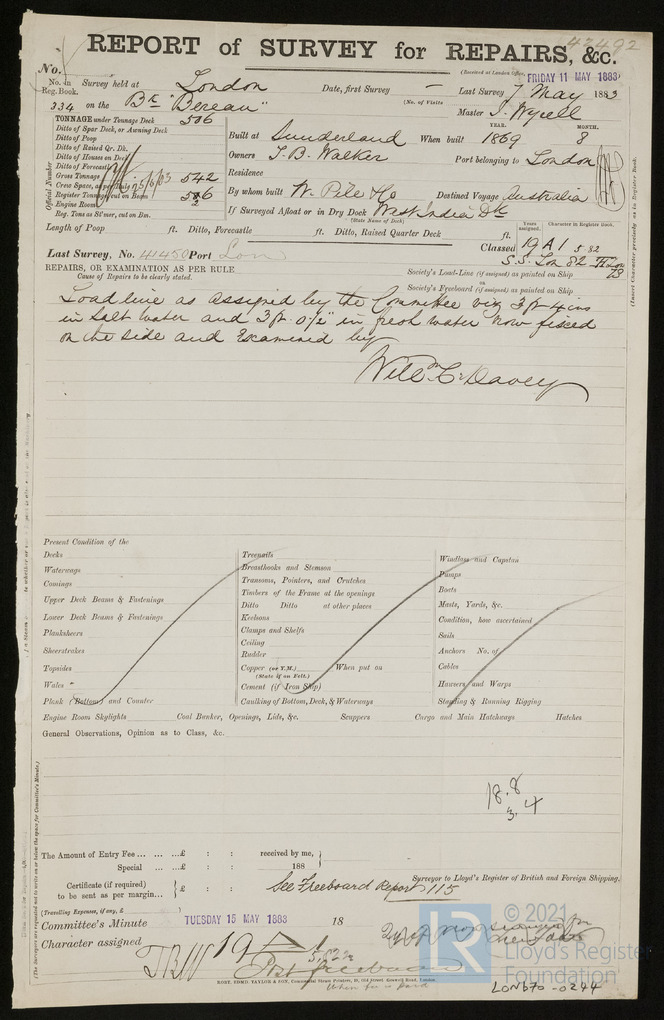 43492
REPORT of SURVEY for REPAIRS, &c.
(Received at London Office, FRIDAY 11 MAY 1883)
No.
No. in Reg. Book. Survey held at London Date, first Survey — Last Survey 7 May 1883
334 on the Bk "Berean" (No. of Visits Master J. Wyrill
TONNAGE under Tonnage Deck 506
Ditto of Spar Deck, or Awning Deck
Ditto of Poop
Ditto of Raised Qr. Dk.
Ditto of Houses on Deck
Ditto of Forecastle
Gross Tonnage 542
Crew Space, as per Rule
Register Tonnage, cut on Beam 526
Engine Room
Reg. Tons as St'mer, cut on Bm.
Official Number
YEAR. MONTH.
Built at Sunderland When built 1869 8
Owners T. B. Walker Port belonging to London
Residence
By whom built W. Pile & Co Destined Voyage Australia
If Surveyed Afloat or in Dry Dock West India Dk
(State Name of Dock)
Length of Poop ft. Ditto, Forecastle ft. Ditto, Raised Quarter Deck ft.
Years assigned. Character in Register Book.
Classed 19 A 1 5.82
S.S. Lon 82
Last Survey, No. 41450 Port Lon
REPAIRS, OR EXAMINATION AS PER RULE
Cause of Repairs to be clearly stated.
Society's Load-Line (if assigned) as painted on Ship
or
Society's Freeboard (if assigned) as painted on Ship
(Insert Character precisely as in Register Book.
Load line as assigned by the Committee viz 3 ft 4 ins
in salt water and 3 ft. 0½" in fresh water now fixed
on the side and Examined by
Willm C. Davey
Present Condition of the
Decks
Waterways
Comings
Upper Deck Beams & Fastenings
Lower Deck Beams & Fastenings
Planksheers
Sheerstrakes
Topsides
Wales
Plank (Bottom) and Counter
Treenails
Breasthooks and Stemson
Transoms, Pointers, and Crutches
Timbers of the Frame at the openings
Ditto Ditto at other places
Keelsons
Clamps and Shelfs
Ceiling
Rudder
Copper (or Y.M.) When put on
(State if on Felt.)
Cement (if Iron Ship)
Caulking of Bottom, Deck, & Waterways
Windlass and Capstan
Pumps
Boats
Masts, Yards, &c.
Condition, how ascertained
Sails
Anchors No. of
Cables
Hawsers and Warps
Standing & Running Rigging
Engine Room Skylights Coal Bunker, Openings, Lids, &c. Scuppers Cargo and Main Hatchways Hatches
General Observations, Opinion as to Class, &c.
18.8
3.4
The Amount of Entry Fee ... ... ...£ : : received by me,
Special ... ...£ : : 188
Certificate (if required) to be sent as per margin... £ : :
See Freeboard Report 115
Surveyor to Lloyd's Register of British and Foreign Shipping.
(Travelling Expenses, if any, £
Committee's Minute TUESDAY 15 MAY 1883 18
Character assigned 19 A 1
TBW
Post freeboard
ROBT. EDMD. TAYLOR & SON, Commercial Steam Printers, 19, Old Street, Goswell Road, London.
(The Surveyors are requested not to write on or below the space for Committee's Minute.)
LR © 2021
Lloyd's Register
Foundation
LON670-0244